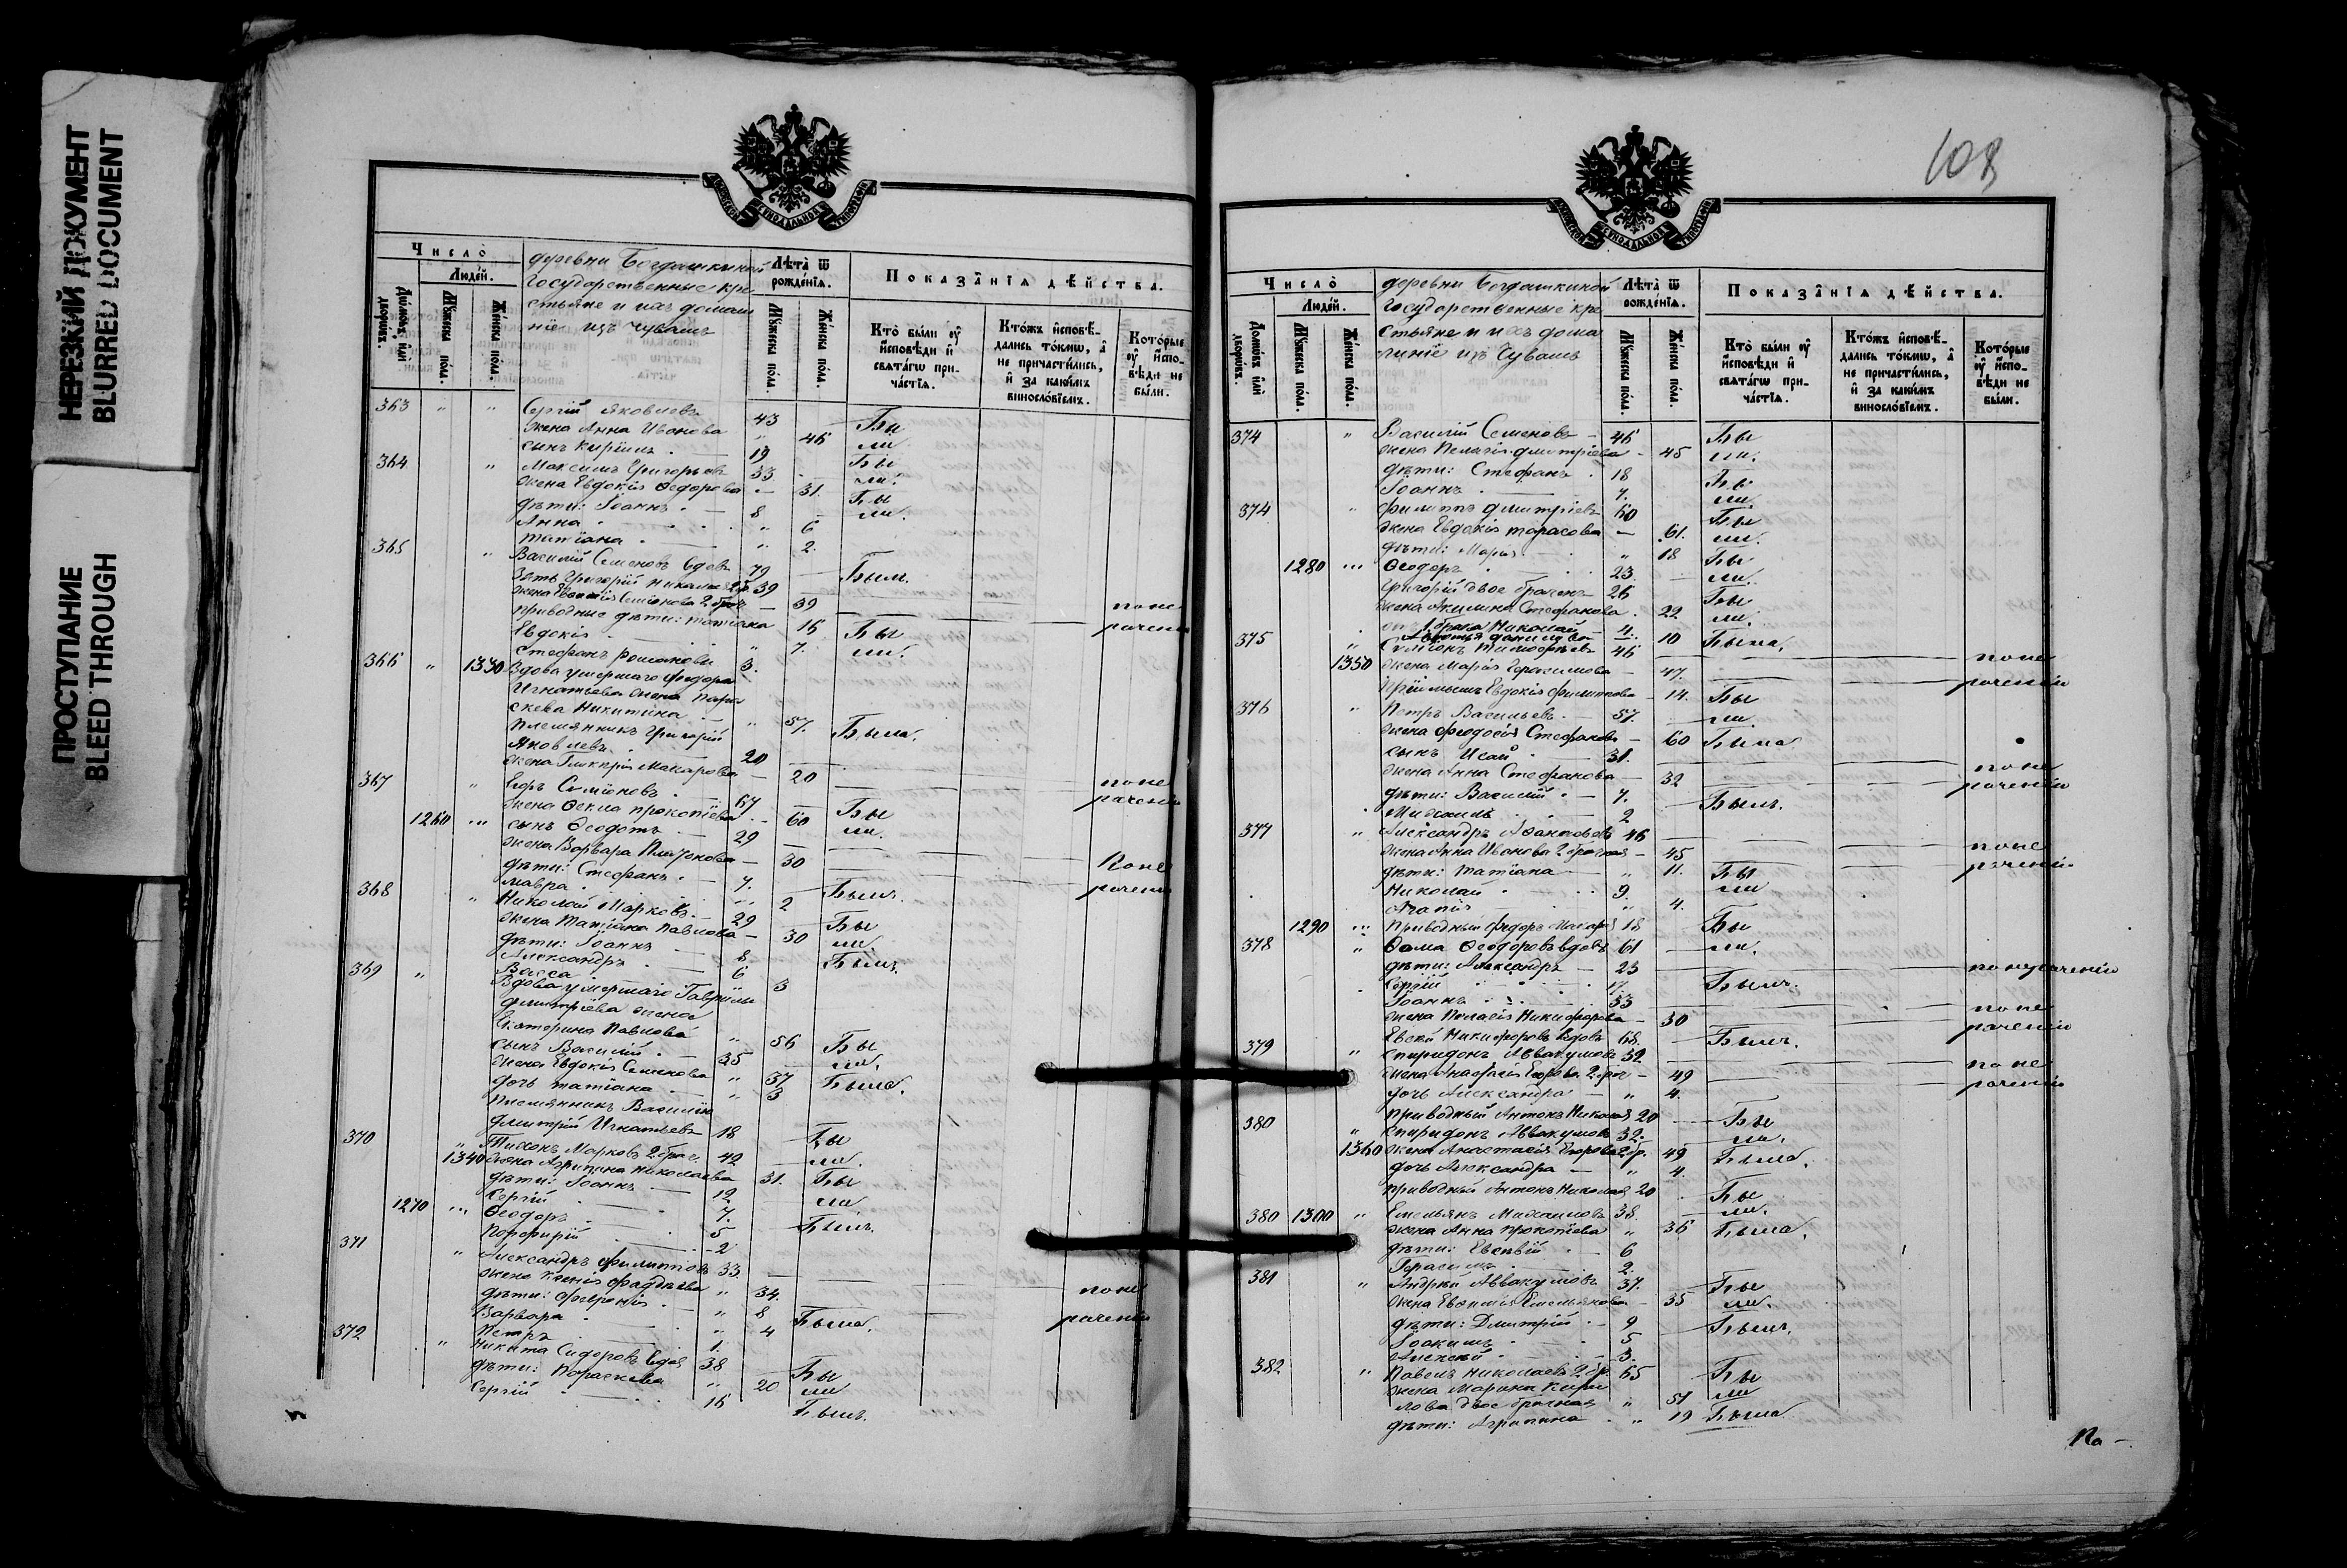 НЕРЕЗКИЙ ДОКУМЕНТ
BLURRED DOCUMENT
ПРОСТУПАНИЕ
BLEED THROUGH
Число
Людей.
Домовъ или дворовъ.
Мужеска пола.
Женска пола.
деревни Богдашкиной
Государственные кре
стьяне и ихъ домаш
ніе изъ Чувашъ
Лѣта ѿ рожденїѧ.
Мужеска пола.
Женска пола.
Показанїѧ дѣйства.
Кто были ѹ исповѣди и свѧтагѡ причастїѧ.
Ктожъ исповѣдались токмѡ, а не причастились, и за какимъ винословїемъ.
Которые ѹ исповѣди не были.
363 " " Сергій Яковлевъ 43 Бы
жена Анна Иванова " 46 ли
сынъ Кириллъ 19 Бы
364 " Максимъ Григорьевъ 33 ли.
жена Евдокія Ѳедорова — 31. Бы
дѣти: Іоаннъ 8 ли.
Анна " 6
Татіана " 2.
365 " Василій Семеновъ вдовъ 79 Былъ.
Зять Григорій Николаевъ 2 бр. 39
жена Евѳимія Семенова 2 брач. — 39 по не
приводные дѣти: Татіана 16 Бы раченію
Евдокія " 7. ли.
Стефанъ Романовъ 3.
366 " 1330 Вдова умершаго Ѳедора
Игнатьева жена Пара
скева Никитина " 57. Была.
Племянникъ Григорій
Яковлевъ 20
жена Гликерія Макарова — 20 по не
367 " Егоръ Симіоновъ 67 раченію
жена Ѳекла Прокопіева — 60 Бы
1260 " сынъ Ѳеодотъ 29 ли.
жена Варвара — 30 По не
дѣти: Стефанъ 7. Былъ. раченію
Мавра " 2
368 " Николай Марковъ 29 Бы
жена Татіана Павлова — 30 ли
дѣти: Іоаннъ 8 Былъ.
Александръ 6
Васса " 3
369 " Вдова умершаго Гавріила
Дмитріева жена
Екатерина Павлова " 56 Бы
сынъ Василій 35 ли.
жена Евдокія Семенова " 37 Была.
дочь Татіана " 3
Племянникъ Василія
Дмитрій Игнатьевъ 18 Бы
370 " Тихонъ Марковъ 2 брач. 42 ли.
1340 жена Агрипина Николаева 31. Бы
дѣти: Іоаннъ 12 ли
Сергій 7. Былъ.
1270 " Ѳеодоръ 5
Порфирій 2
371 " Александръ Филиповъ 33.
жена Ксенія Фаддѣева " 34. по не
дѣти: Февронія " 8 Была. раченію
Варвара " 4
Петръ 1.
372 " Никита Сидоровъ вдов. 38 Бы
дѣти: Параскева " 20 ли
Сергій 16 Былъ.
108
Число
Людей.
Домовъ или дворовъ.
Мужеска пола.
Женска пола.
деревни Богдашкиной
Государственные кре
стьяне и ихъ дома
шніе изъ Чувашъ
Лѣта ѿ рожденїѧ.
Мужеска пола.
Женска пола.
Показанїѧ дѣйства.
Кто были ѹ исповѣди и свѧтагѡ причастїѧ.
Ктожъ исповѣдались токмѡ, а не причастились, и за какимъ винословїемъ.
Которые ѹ исповѣди не были.
374 " Василій Семеновъ 46 Бы
жена Пелагія Дмитріева — 45 ли.
дѣти: Стефанъ 18 Бы
Іоаннъ 7. ли
374 " Филиппъ Дмитріевъ 60 Бы
жена Евдокія Тарасова — 61. ли.
дѣти: Марія " 18 Бы
1280 " Ѳеодоръ 23. ли.
Григорій двое браченъ 26 Бы
жена Акилина Стефанова 22 ли.
отъ 1 брака Николай 4.
Данилова 10 Была.
375 " Симіонъ Тимофѣевъ 46 по не
1350 жена Марія Герасимова — 47. раченію
Пріймышъ Евдокія Филиппова — 14. Бы
376 " Петръ Васильевъ 57. ли.
жена Феодосія Стефанова — 60 Была
сынъ Исай 31. по не
жена Анна Стефанова — 32 раченію
дѣти: Василій 7. Былъ.
Михаилъ 2
377 " Александръ Аѳанасьевъ 46 по не
жена Анна Иванова 2 брачная — 45 раченію
дѣти: Татіана " 11. Бы
Николай 9. ли
Агапія " 4.
1290 " Приводный Ѳедоръ Макаровъ 18 Бы
378 " Ѳома Ѳеодоровъ вдовъ 61 ли.
дѣти: Александръ 23 по нераченію
Сергій 17. Былъ.
Іоаннъ 33 по не
жена Пелагія Никифорова — 30 раченію
Евсѣй Никифоровъ вдовъ 68. Былъ.
379 " Спиридонъ Аввакумовъ 32 по не
жена Анастасія Егорова 2 брач — 49 раченію
дочь Александра " 4.
приводный Антонъ Николаевъ 20 Бы
380 " Спиридонъ Аввакумовъ 32. ли.
1360 жена Анастасія Егорова 2 бр. 49 Была.
дочь Александра " 4.
приводный Антонъ Николаевъ 20 Бы
380 1300 " Емельянъ Михаиловъ 38. ли.
жена Анна Прокопіева " 36 Была.
дѣти: Евсевій 6
Герасимъ 2.
381 " Андрей Аввакумовъ 37. Бы
жена Евѳимія Емельянова — 35 ли.
дѣти: Дмитрій 9 Былъ.
Іоакимъ 5
Алексѣй 3.
382 " Павелъ Николаевъ 2 бр. 65 Бы
жена Марина Кири
лова двое брачная " 51 ли
дѣти: Агрипина " 19 Была
Па –.